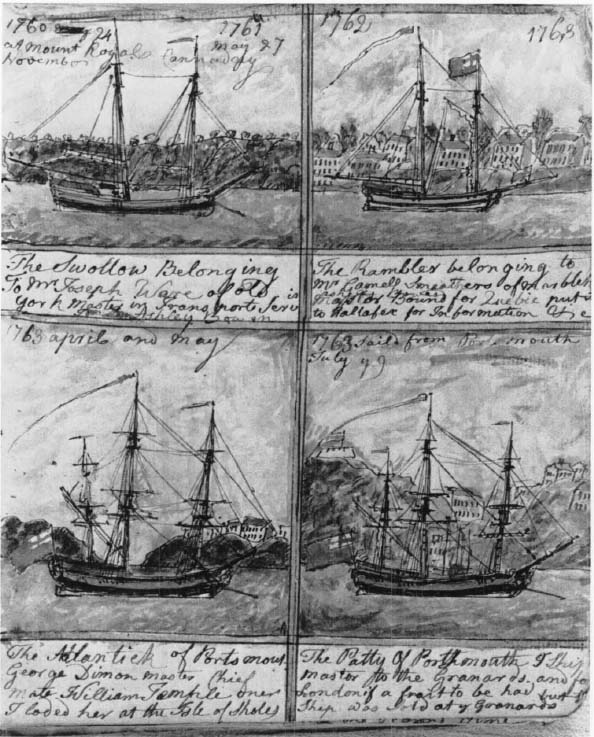 1760 24
at Mount Royal
November Cannady
1761
may 27
1762
1763
The Swollow Belonging
To Mr Joseph Ware of old
York master in transport
The Rambler belonging to
Mr Gamell Smeathers of Marbleh
Bound for Quebic put
to Hallafex for Information
1763 april and may
1763 Saild from mouth
July 29
The Atlantick of Portsmout
George Dimon master Chief
mate William Temple oner
I loded her at the Isle of Sholes
The Patty of Porthmouth I Ship
master for the Granards, and fo
London if a frait to be had but
Ship was Sold at y Granards